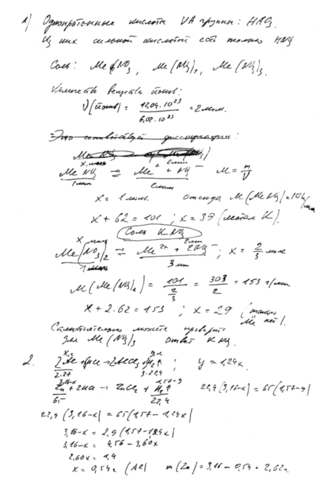 1) Одноосновные кислоты VA группы: HЭO₃
Из них сильной кислотой есть только HNO₃
Соль: MeNO₃, Me(NO₃)₂, Me(NO₃)₃.
Количество вещества ионов:
ν(ионов) = 12,04·10²³ / 6,02·10²³ = 2 моль.
MeNO₃ ⇌ Me⁺ + NO₃⁻ M = m/ν
1 моль 2 моль
x = 1 моль. отсюда M(MeNO₃) = 101 г/моль
x + 62 = 101 ; x = 39 (металл K).
Соль KNO₃
Me(NO₃)₂ ⇌ Me²⁺ + 2NO₃⁻ ; x = 2/3 моль.
1 моль 3 моль
M(Me(NO₃)₂) = 101 / (2/3) = 303/2 = 153 г/моль
x + 2·62 = 153 ; x = 29 (такого Me нет).
Самостоятельно можете проверить
для Me(NO₃)₃ ответ KNO₃
2.
y = 1,24x
22,4(3,16-x) = 65(1,57-y)
22,4(3,16-x) = 65(1,57-1,24x)
3,16-x = 2,9(1,57-1,24x)
3,16-x = 4,56 - 3,60x
2,60x = 1,4
x = 0,54г (Al) m(Zn) = 3,16 - 0,54 = 2,62г